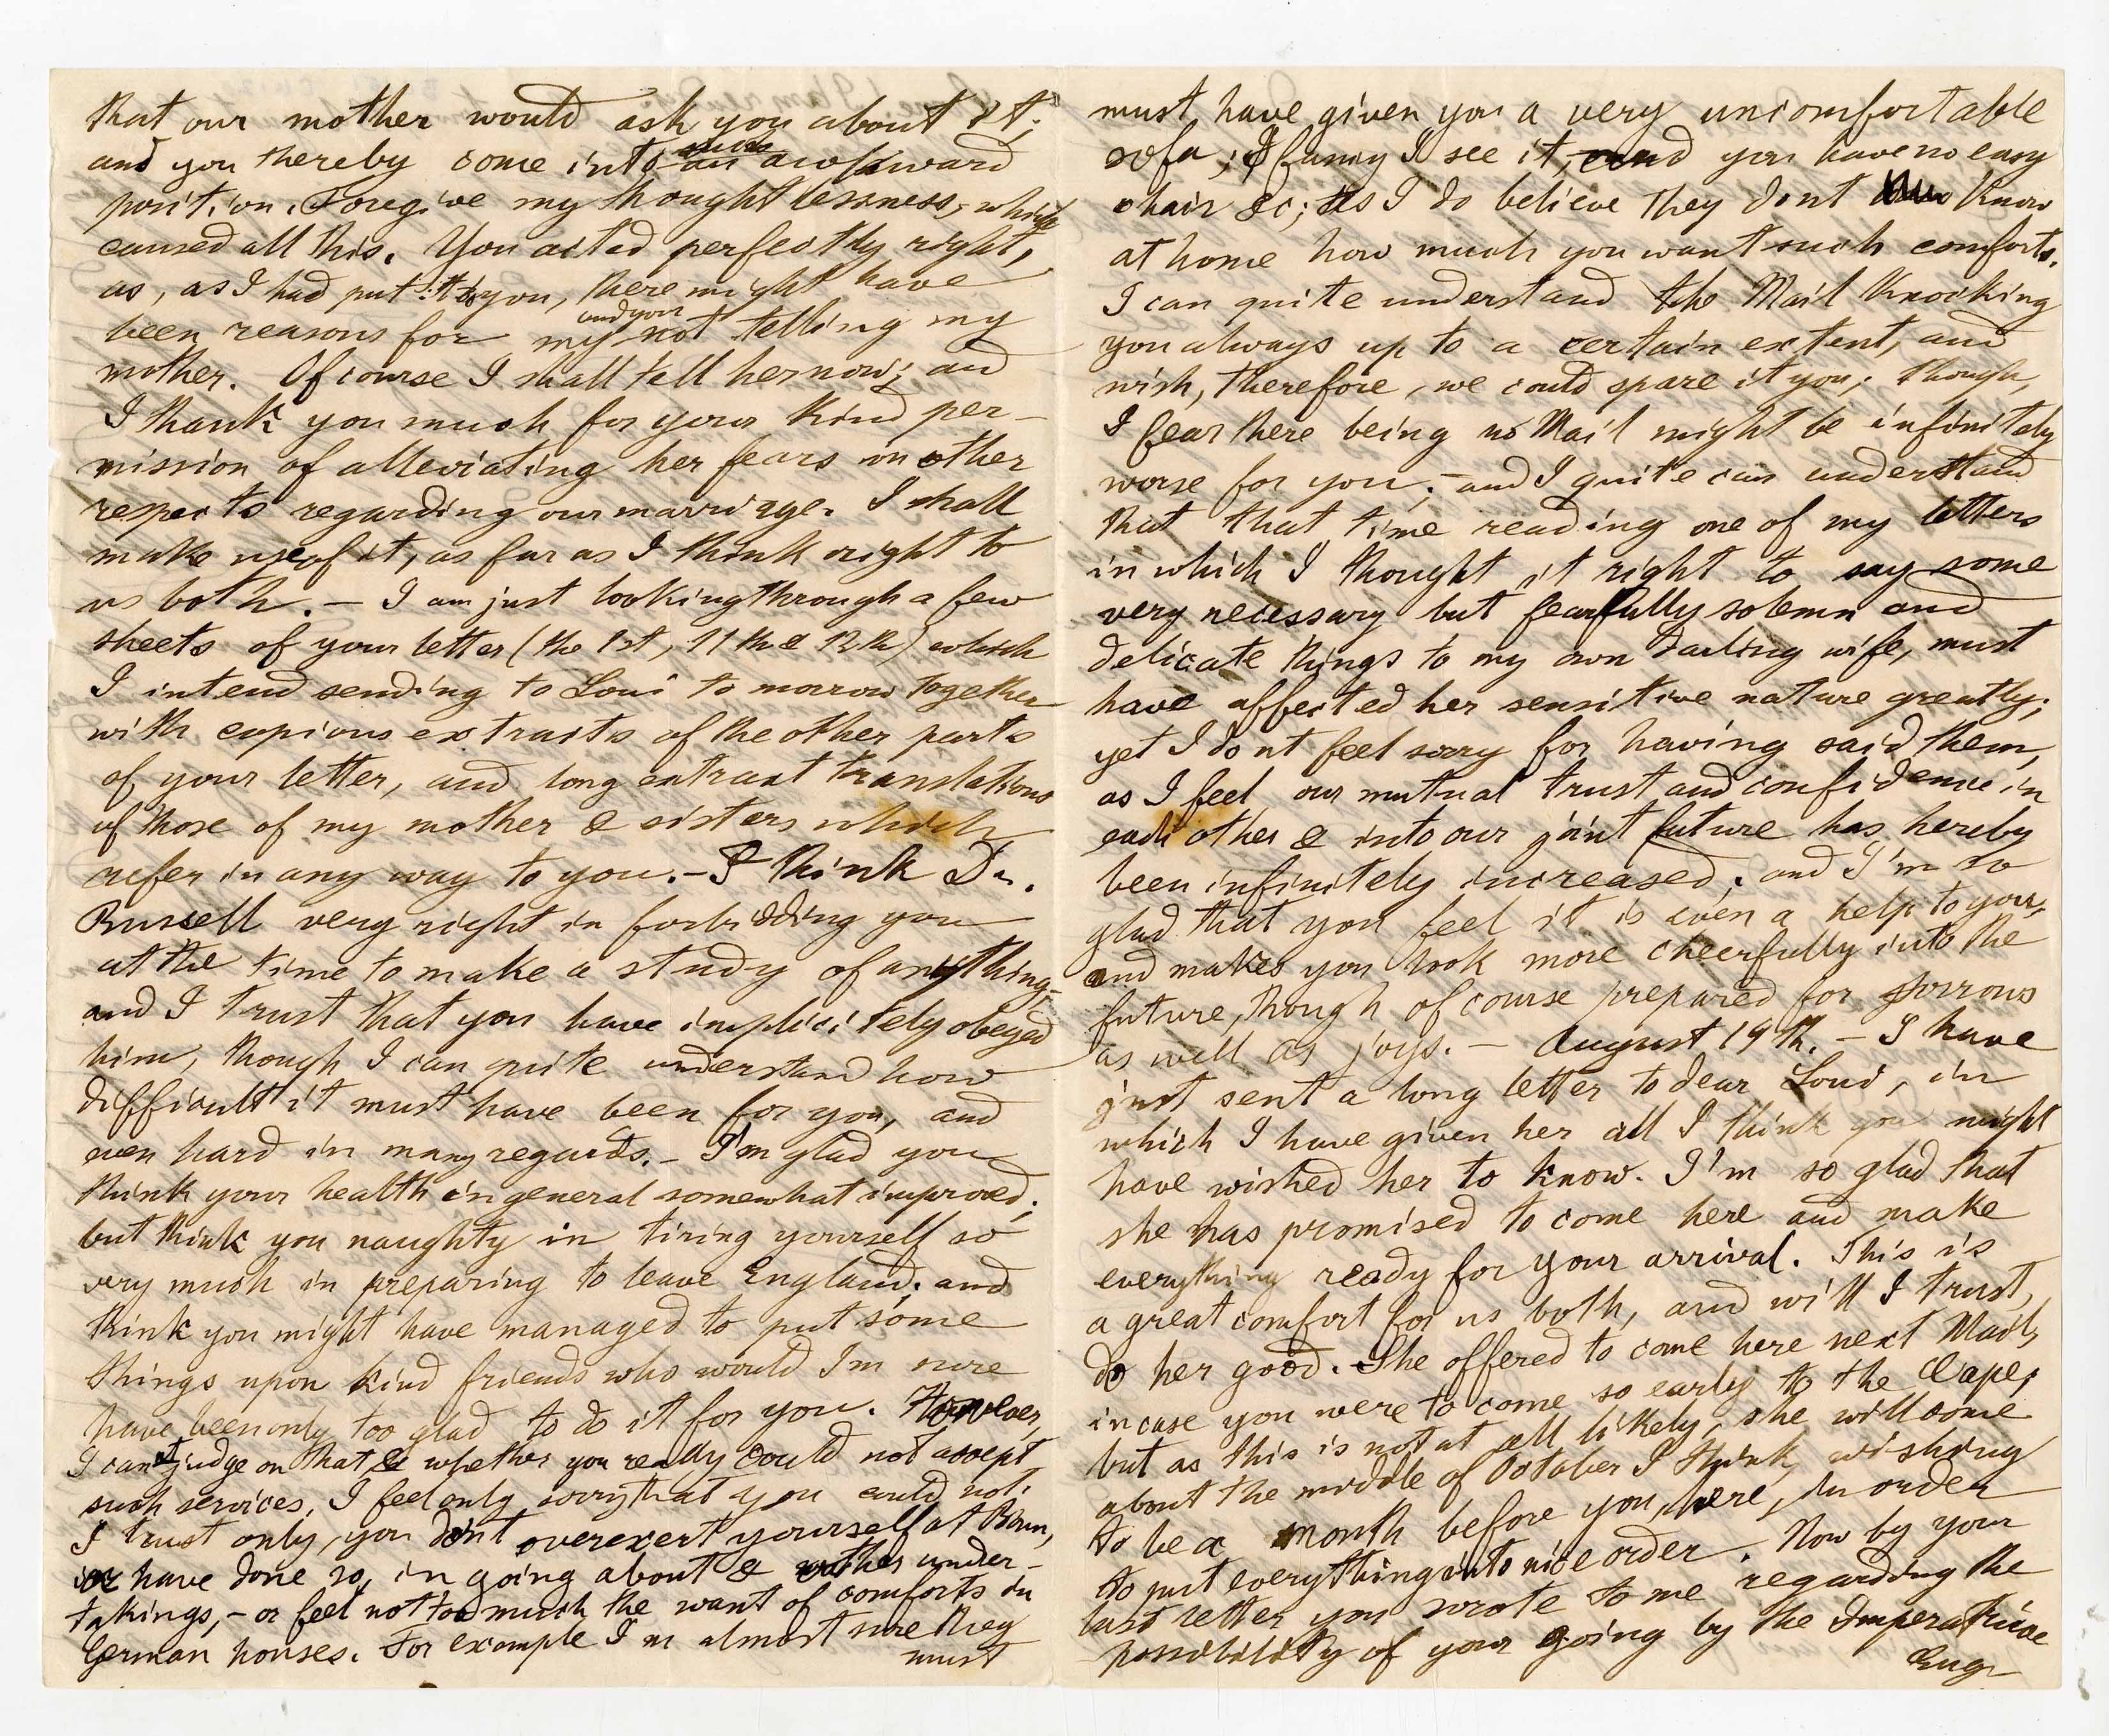 that our mother would ask you about it;
and you thereby come into such awkward
position. Foregive my thoughtlessness, which
caused all this. You acted perfectly right,
as, as I had put it to you, there might have
been reasons for my and your not telling my
mother. Of course I shall tell her now; and
I thank you much for your kind per-
mission of alleviating her fears in other
respects regarding our marriage. I shall
make use of it, as far as I think right to
us both. – I am just looking through a few
sheets of your letter (the 1st, 11th & 12th) which
I intend sending to Loui to morrow together
with copious extracts of the other parts
of your letter, and long extract translations
of those of my mother & sisters which
refer in any way to you. – I think Dr.
Russell very right in forbidding you
at the time to make a study of anything,
and I trust that you have implicitely obeyed
him, though I can quite understand how
difficult it must have been for you, and
even hard in many regards. – I'm glad you
think your health in general somewhat improved;
but think you naughty in tiring yourself so
very much in preparing to leave England; and
think you might have managed to put some
things upon kind friends who would I'm sure
have been only too glad to do it for you. However,
I can't judge on that & whether you really could not accept
such services, I feel only sorry that you could not.
I trust only, you don't overexert yourself at Bonn,
or have done so, in going about & other under-
takings, – or feel not too much the want of comforts in
German houses. For example I'm almost sure they
must
must have given you a very uncomfortable
sofa; I fancy I see it, and you have no easy
chair &c; as I do believe they dont know
at home how much you want such comforts.
I can quite understand the Mail knocking
you always up to a certain extent, and
wish, therefore, we could spare it you; though,
I fear there being no Mail might be infinitely
worse for you; – and I quite can understand
that that time reading one of my letters
in which I thought it right to say some
very necessary but fearfully solemn and
delicate things to my own darling wife, must
have affected her sensitive nature greatly;
yet I dont feel sorry for having said them,
as I feel our mutual trust and confidence in
each other & into our joint future has hereby
been infinitely increased; and I'm so
glad that you feel it is even a help to you,
and makes you look more cheerfully into the
future, though of course prepared for sorrows
as well as joys. – August 19th. – I have
just sent a long letter to dear Loui, in
which I have given her all I think you might
have wished her to know. I'm so glad that
she has promised to come here and make
everything ready for your arrival. This is
a great comfort for us both, and will I trust,
do her good. She offered to come here next Mail,
in case you were to come so early to the Cape;
but as this is not at all likely, she will come
about the middle of October I think, wishing
to be a month before you here, in order
to put everything into nice order. Now by your
last letter you wrote to me regarding the
possibility of your going by the Imperatrice
Eug